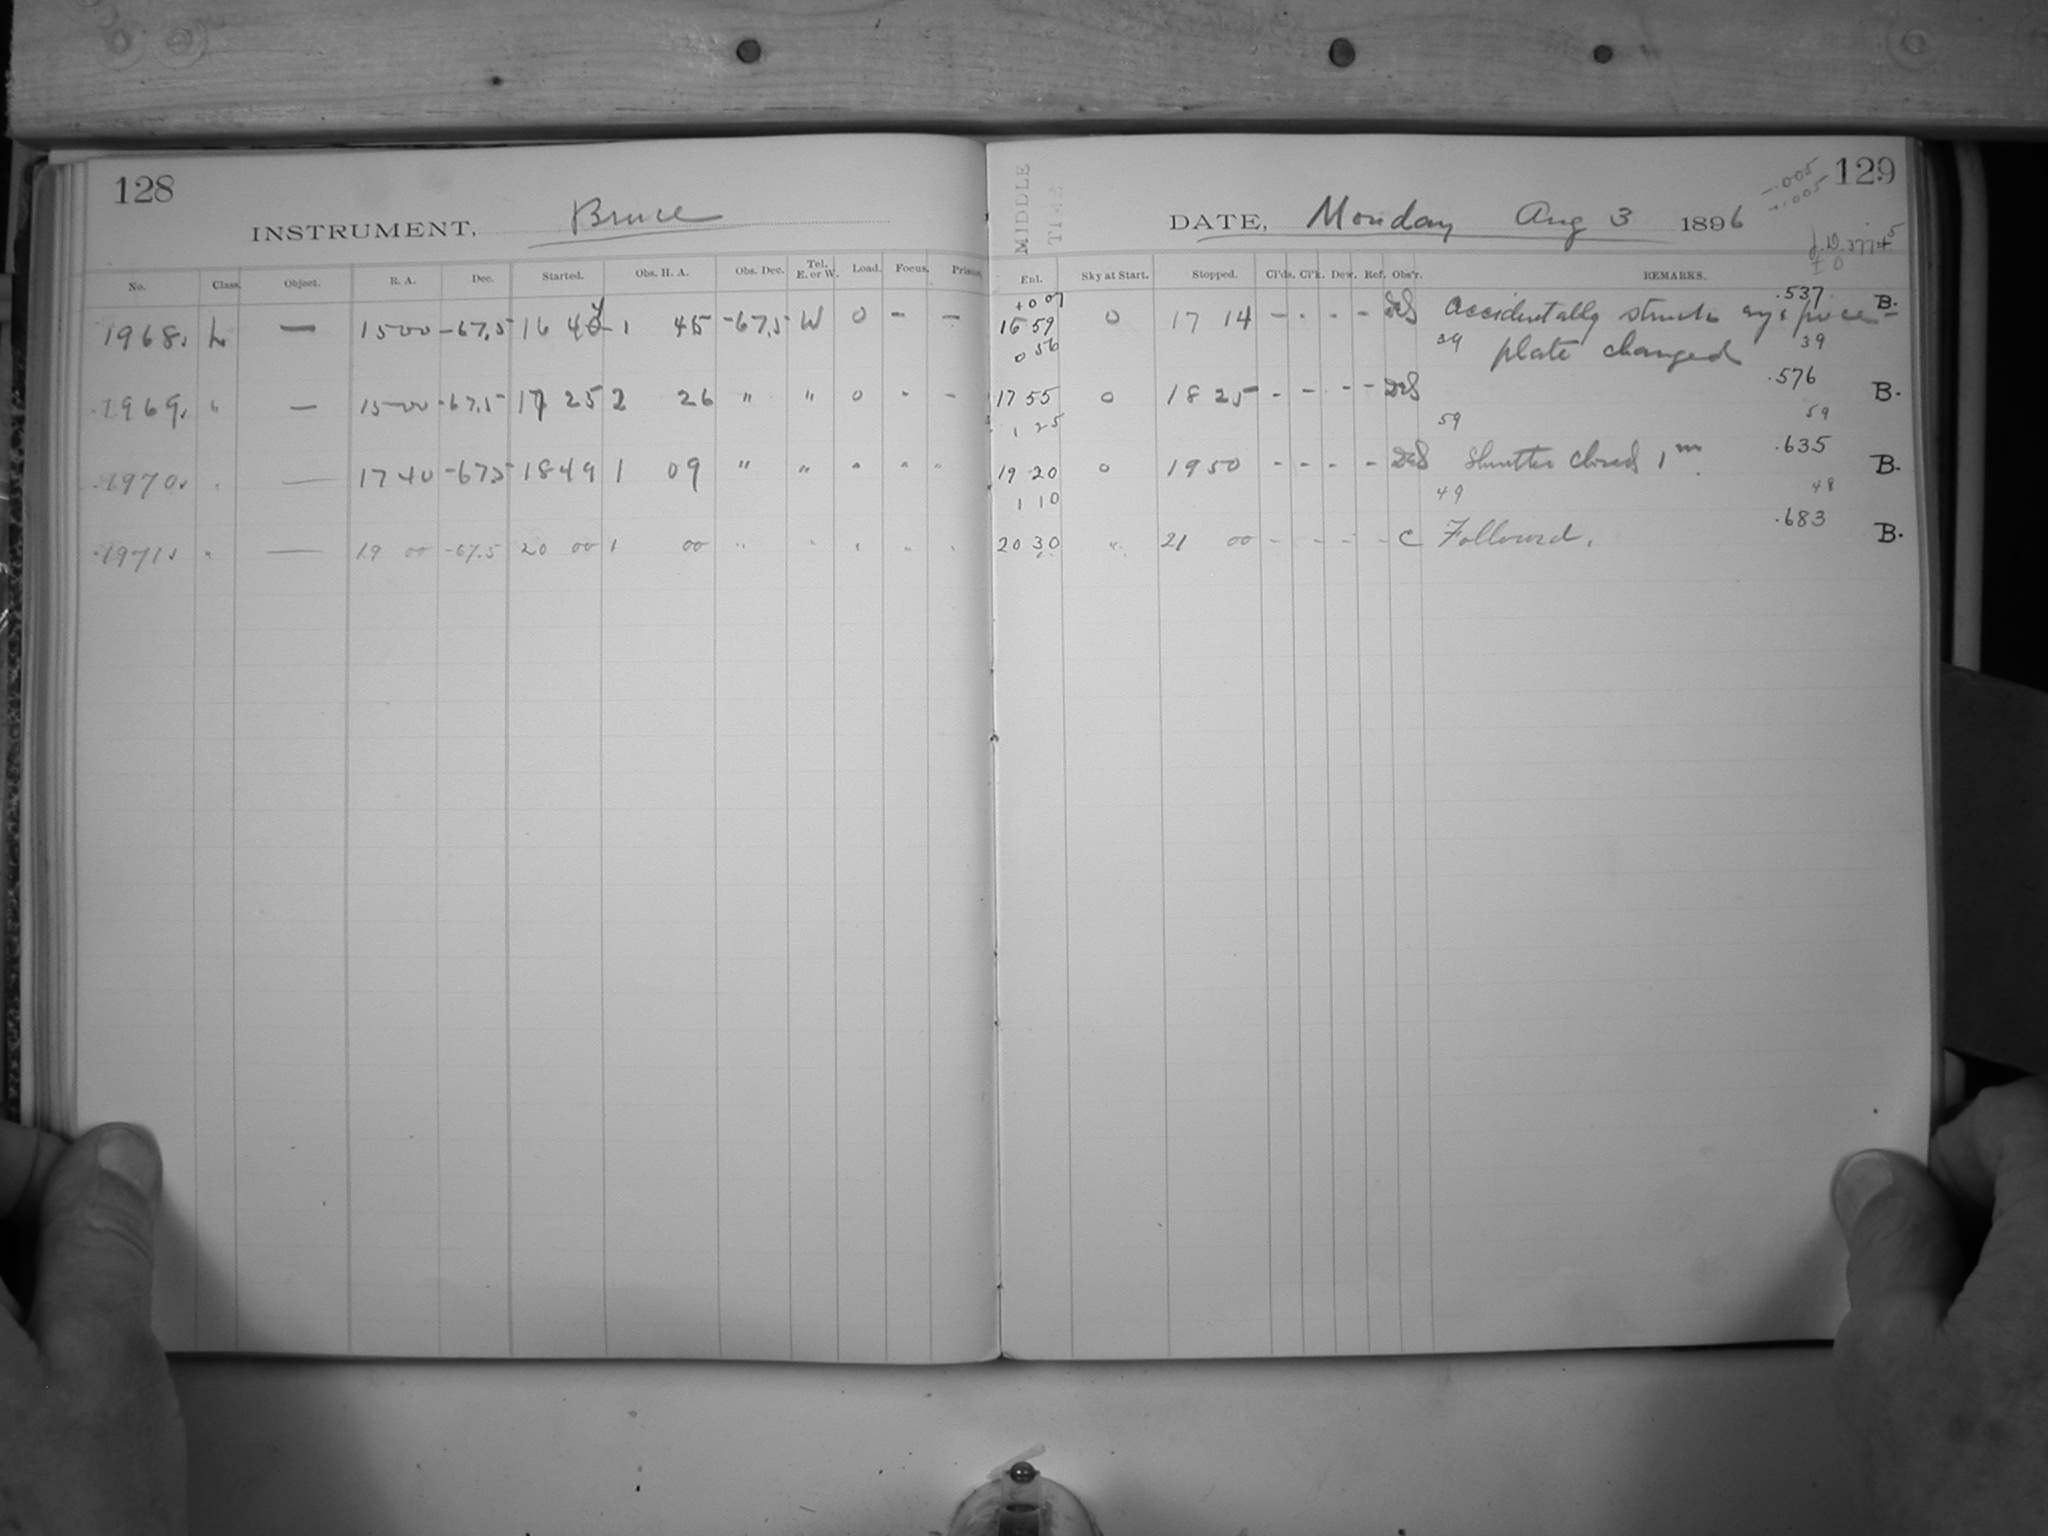 128
INSTRUMENT, Bruce
No. Class. Object. R. A. Dec. Started. Obs. H. A. Obs. Dec. Tel. E. or W. Load. Focus. Prisms.
1968. L — 15 00 -67.5 16 45 -67.5 W 0 - -
1969. " — 15 00 -67.5 17 25 2 26 " " 0 " -
1970. " — 17 40 -67.5 18 49 1 09 " " " " "
1971. " — 19 00 -67.5 20 00 1 00 " " " " "
129
-.005
+.005
MIDDLE TIME
DATE, Monday Aug 3 1896
J.D. 3774
± 0
Enl. Sky at Start. Stopped. Cl'ds. Cl'k. Dew. Ref. Obs'r. REMARKS.
+0 07 .537
16 59 0 17 14 - - - - Accidentally struck B.
0 56 39 plate changed 39
.576
17 55 0 18 25 - - - - B.
1 25 59 59
.635
19 20 0 19 50 - - - - Shutter closed 1m. B.
1 10 49 48
.683
20 30 " 21 00 - - - - C Followed. B.